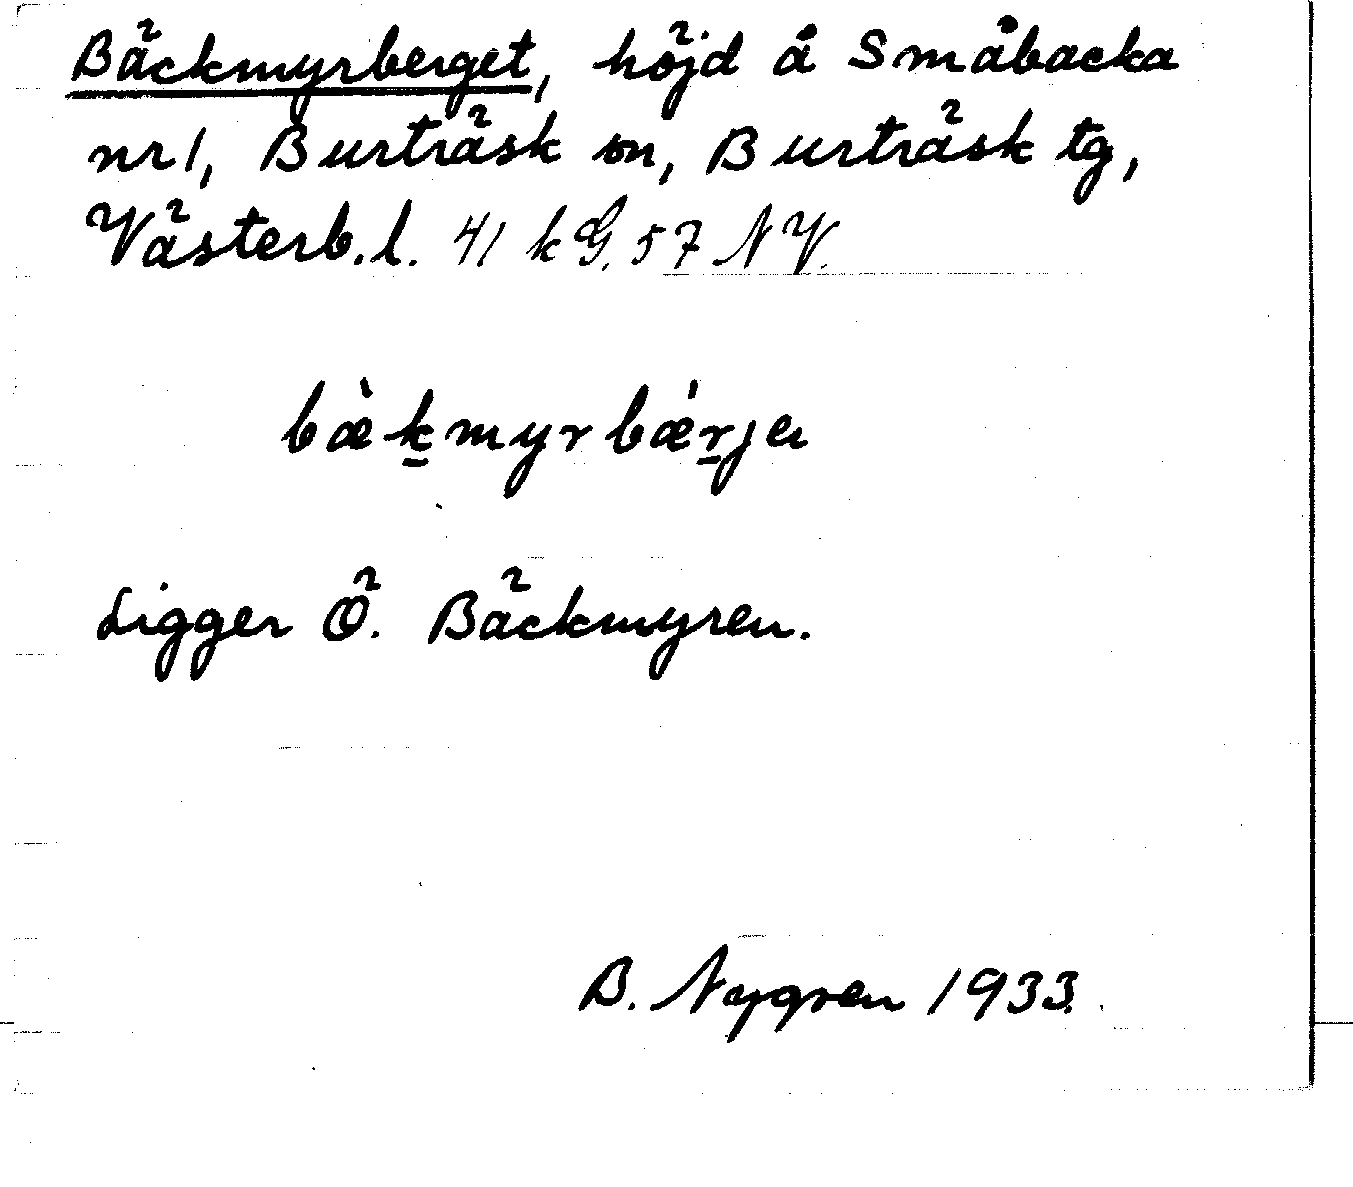 Bäckmyrberget, höjd å Småbacka
nr 1, Burträsk sn, Burträsk tg,
Västerb.l. 41 k G. 57 NV.
bæ̀k̲myrbǽr̲ja
Ligger Ö. Bäckmyren.
B. Nygren 1933.